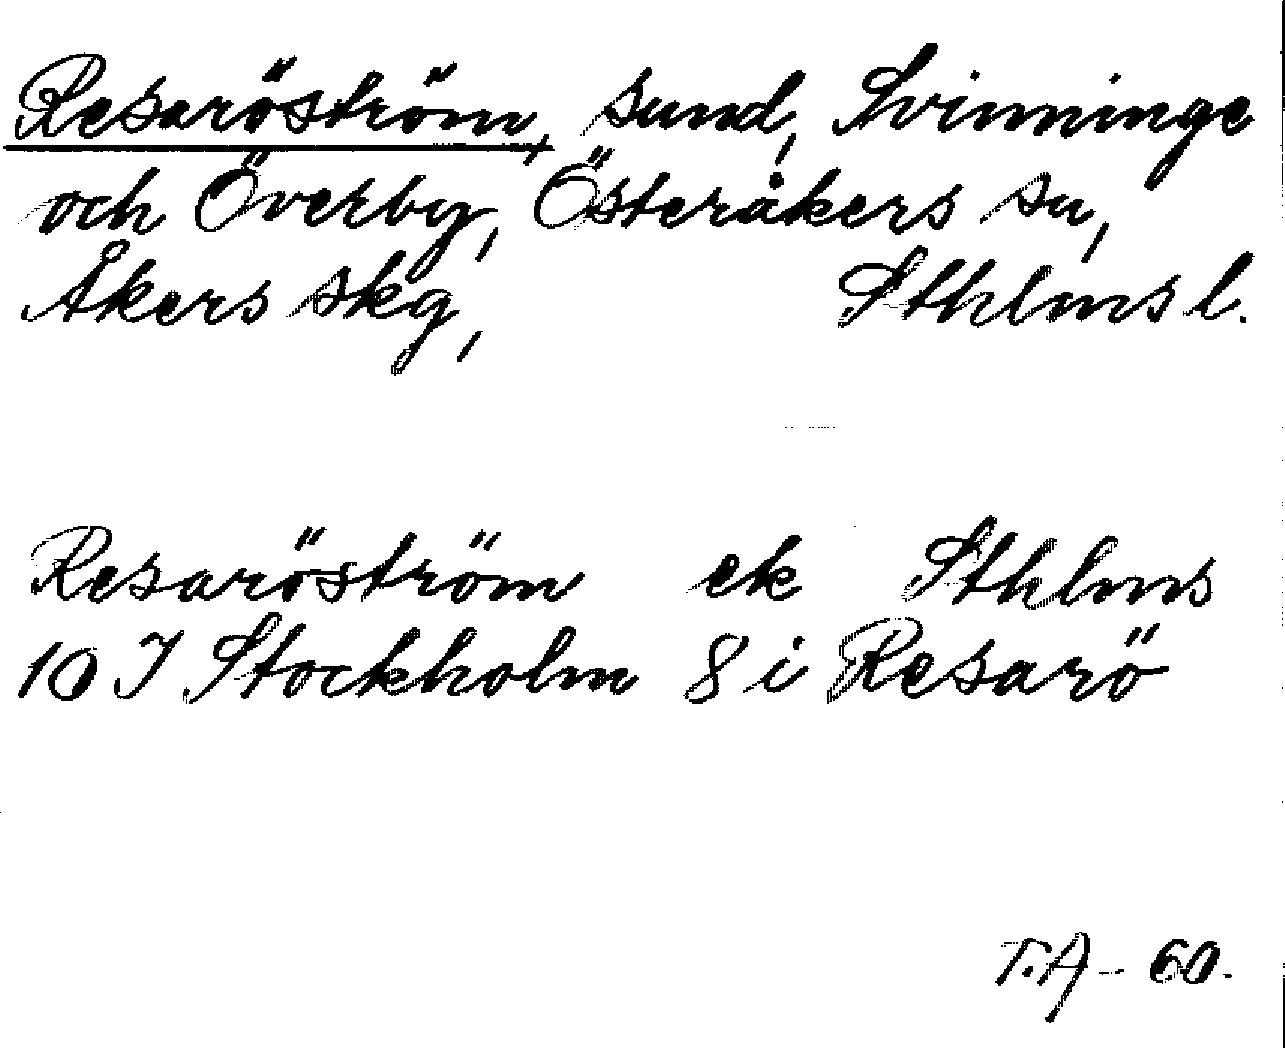 Resaröström, sund, Svinninge
och Överby, Österåkers sn,
Åkers skg, Sthlms l.
Resaröström ek Sthlms
10 I Stockholm 8 i Resarö
T.A - 60.